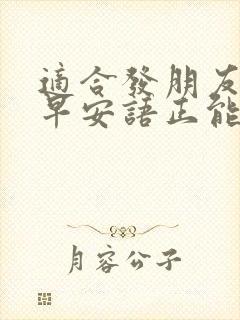 適合發朋友
早安語正能
月容公子